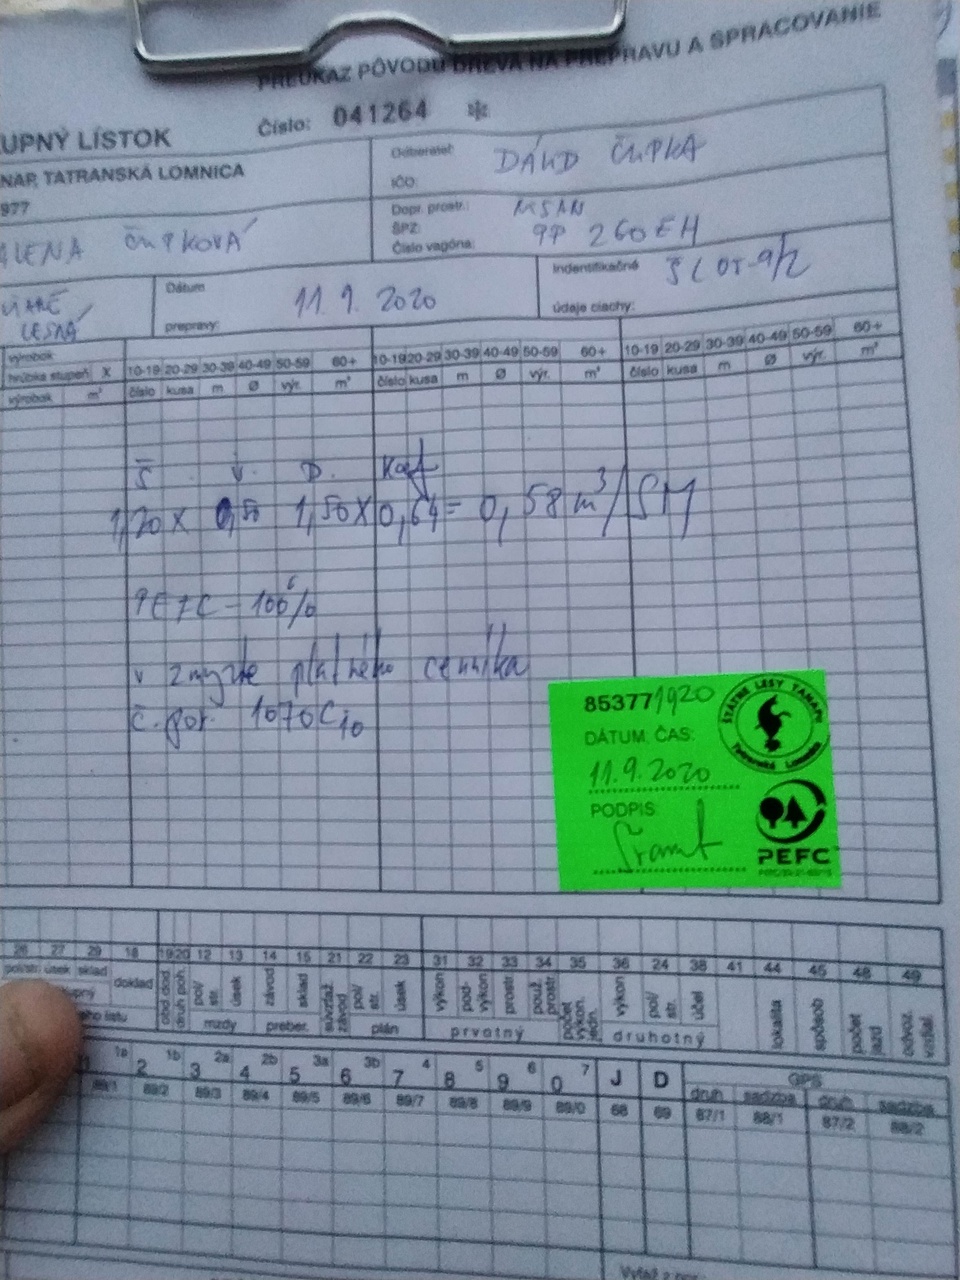 PREUKAZ PÔVODU DREVA NA PREPRAVU A SPRACOVANIE
UPNÝ LÍSTOK
Číslo: 041264
NAP, TATRANSKÁ LOMNICA
977
Odberateľ:
ČUPKA
IČO:
ALENA ČUPKOVÁ
Dopr. prostr.:
ŠPZ: PP 260EH
Číslo vagóna:
LESNÁ
Dátum
prepravy: 11.9.2020
Indentifikačné
údaje ciachy:
výrobok
hrúbka stupeň X 10-19 20-29 30-39 40-49 50-59 60+ 10-19 20-29 30-39 40-49 50-59 60+ 10-19 20-29 30-39 40-49 50-59 60+
výrobok m³ číslo kusa m Ø výr. m³ číslo kusa m Ø výr. m³ číslo kusa m Ø výr. m³
Š V. D. Koef
1,20 x 0,50 1,50 x 0,64 = 0,58 m³/SM
PEFC - 100%
v zmysle platného cenníka
č. por. 1070C10
85377 1920
ŠTÁTNE LESY TANAPU
Tatranská Lomnica
DÁTUM, ČAS:
11.9.2020
PODPIS:
PEFC
26 27 29 18 19 20 12 13 14 15 21 22 23 31 32 33 34 35 36 24 38 41 44 45 48 49
úsek sklad doklad obd.dod druh poh. pol/ str. úsek závod sklad súvzťaž. závod pol/ str. úsek výkon pod- výkon prostr použ. prostr počet výkon. jedn. výkon pol/ str. účel lokalita spôsob počet jázd odvoz. vzdial.
mzdy preber. plán prvotný druhotný
1a 2 1b 3 2a 4 2b 5 3a 6 3b 7 4 8 5 9 6 0 7 J D GPS
druh sadzba druh sadzba
89/1 89/2 89/3 89/4 89/5 89/6 89/7 89/8 89/9 89/0 68 69 87/1 88/1 87/2 88/2